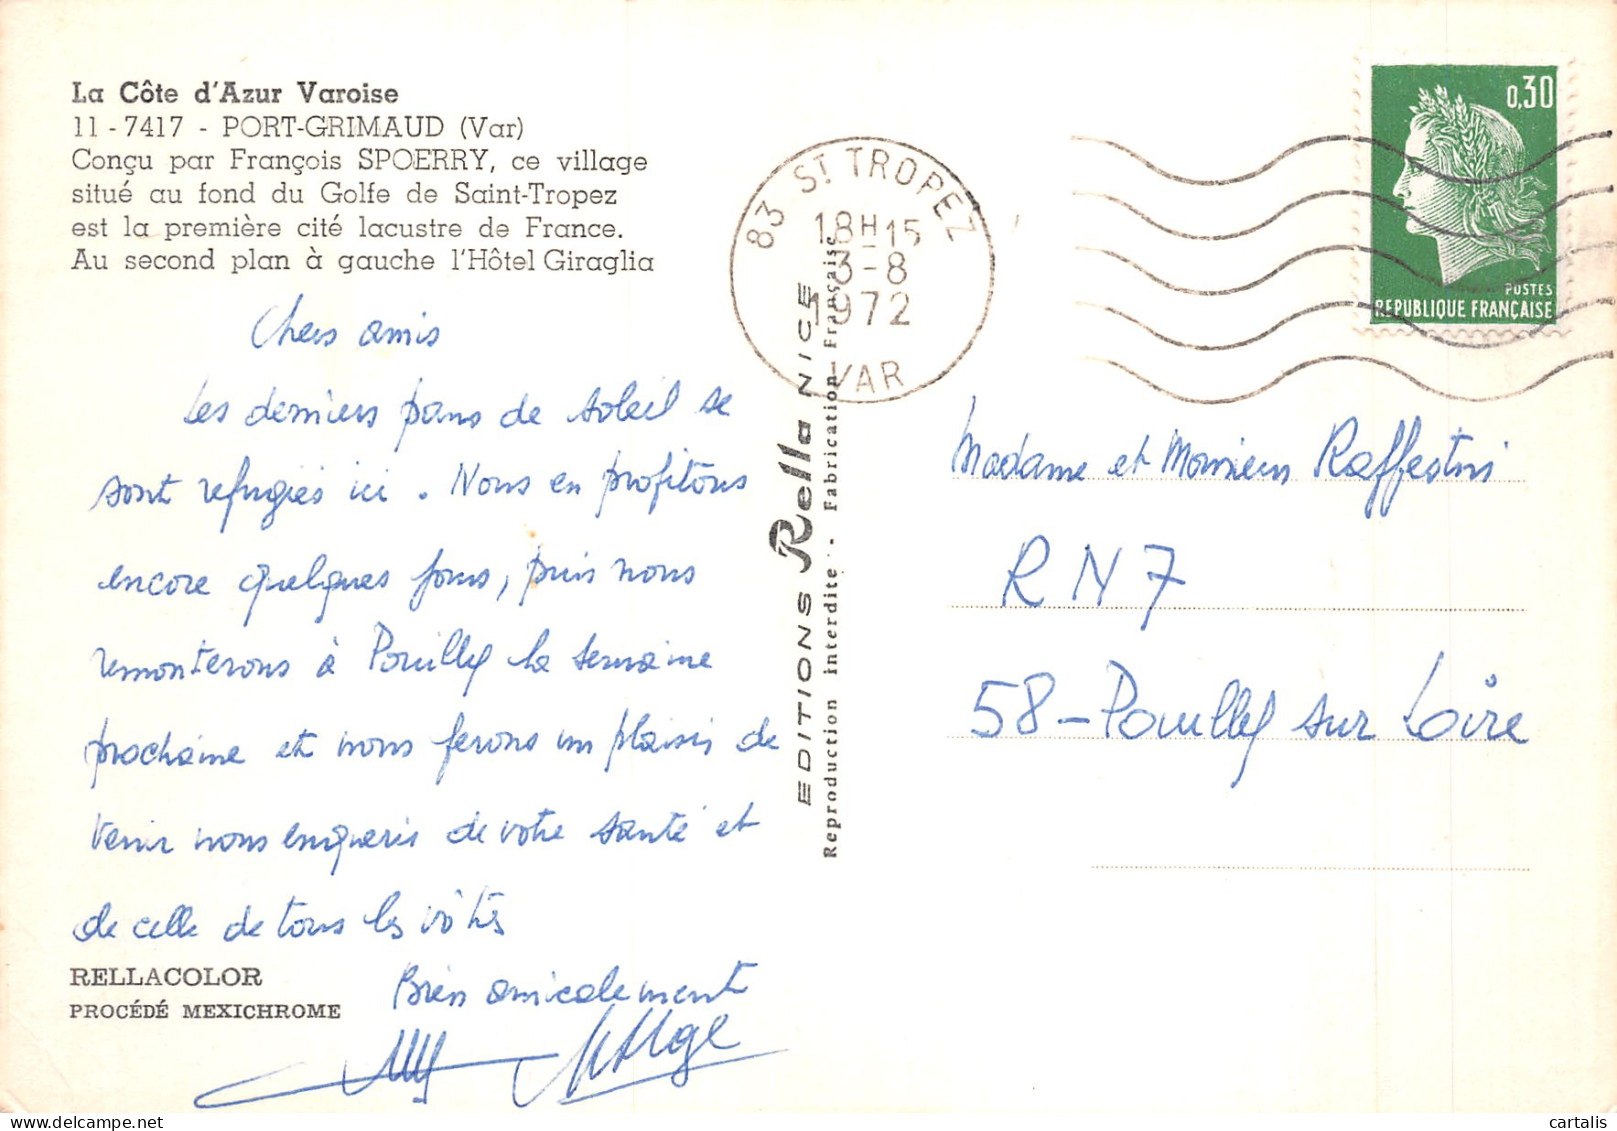 La Côte d'Azur Varoise
11 - 7417 - PORT-GRIMAUD (Var)
Conçu par François SPOERRY, ce village
situé au fond du Golfe de Saint-Tropez
est la première cité lacustre de France.
Au second plan à gauche l'Hôtel Giraglia
Chers amis
Les derniers pans de soleil se
sont refugiés ici. Nous en profitons
encore quelques jours, puis nous
remonterons à Pouilly la semaine
prochaine et nous ferons un plaisir de
venir nous enquérir de votre santé et
de celle de tous les vôtres
Bien amicalement
RELLACOLOR
PROCÉDÉ MEXICHROME
EDITIONS Rella NICE
Reproduction Interdite - Fabrication Française
83 ST TROPEZ
18H15
3-8
1972
VAR
0,30
POSTES
REPUBLIQUE FRANÇAISE
Madame et Monsieur Raffestin
RN7
58 - Pouilly sur Loire
cartalis